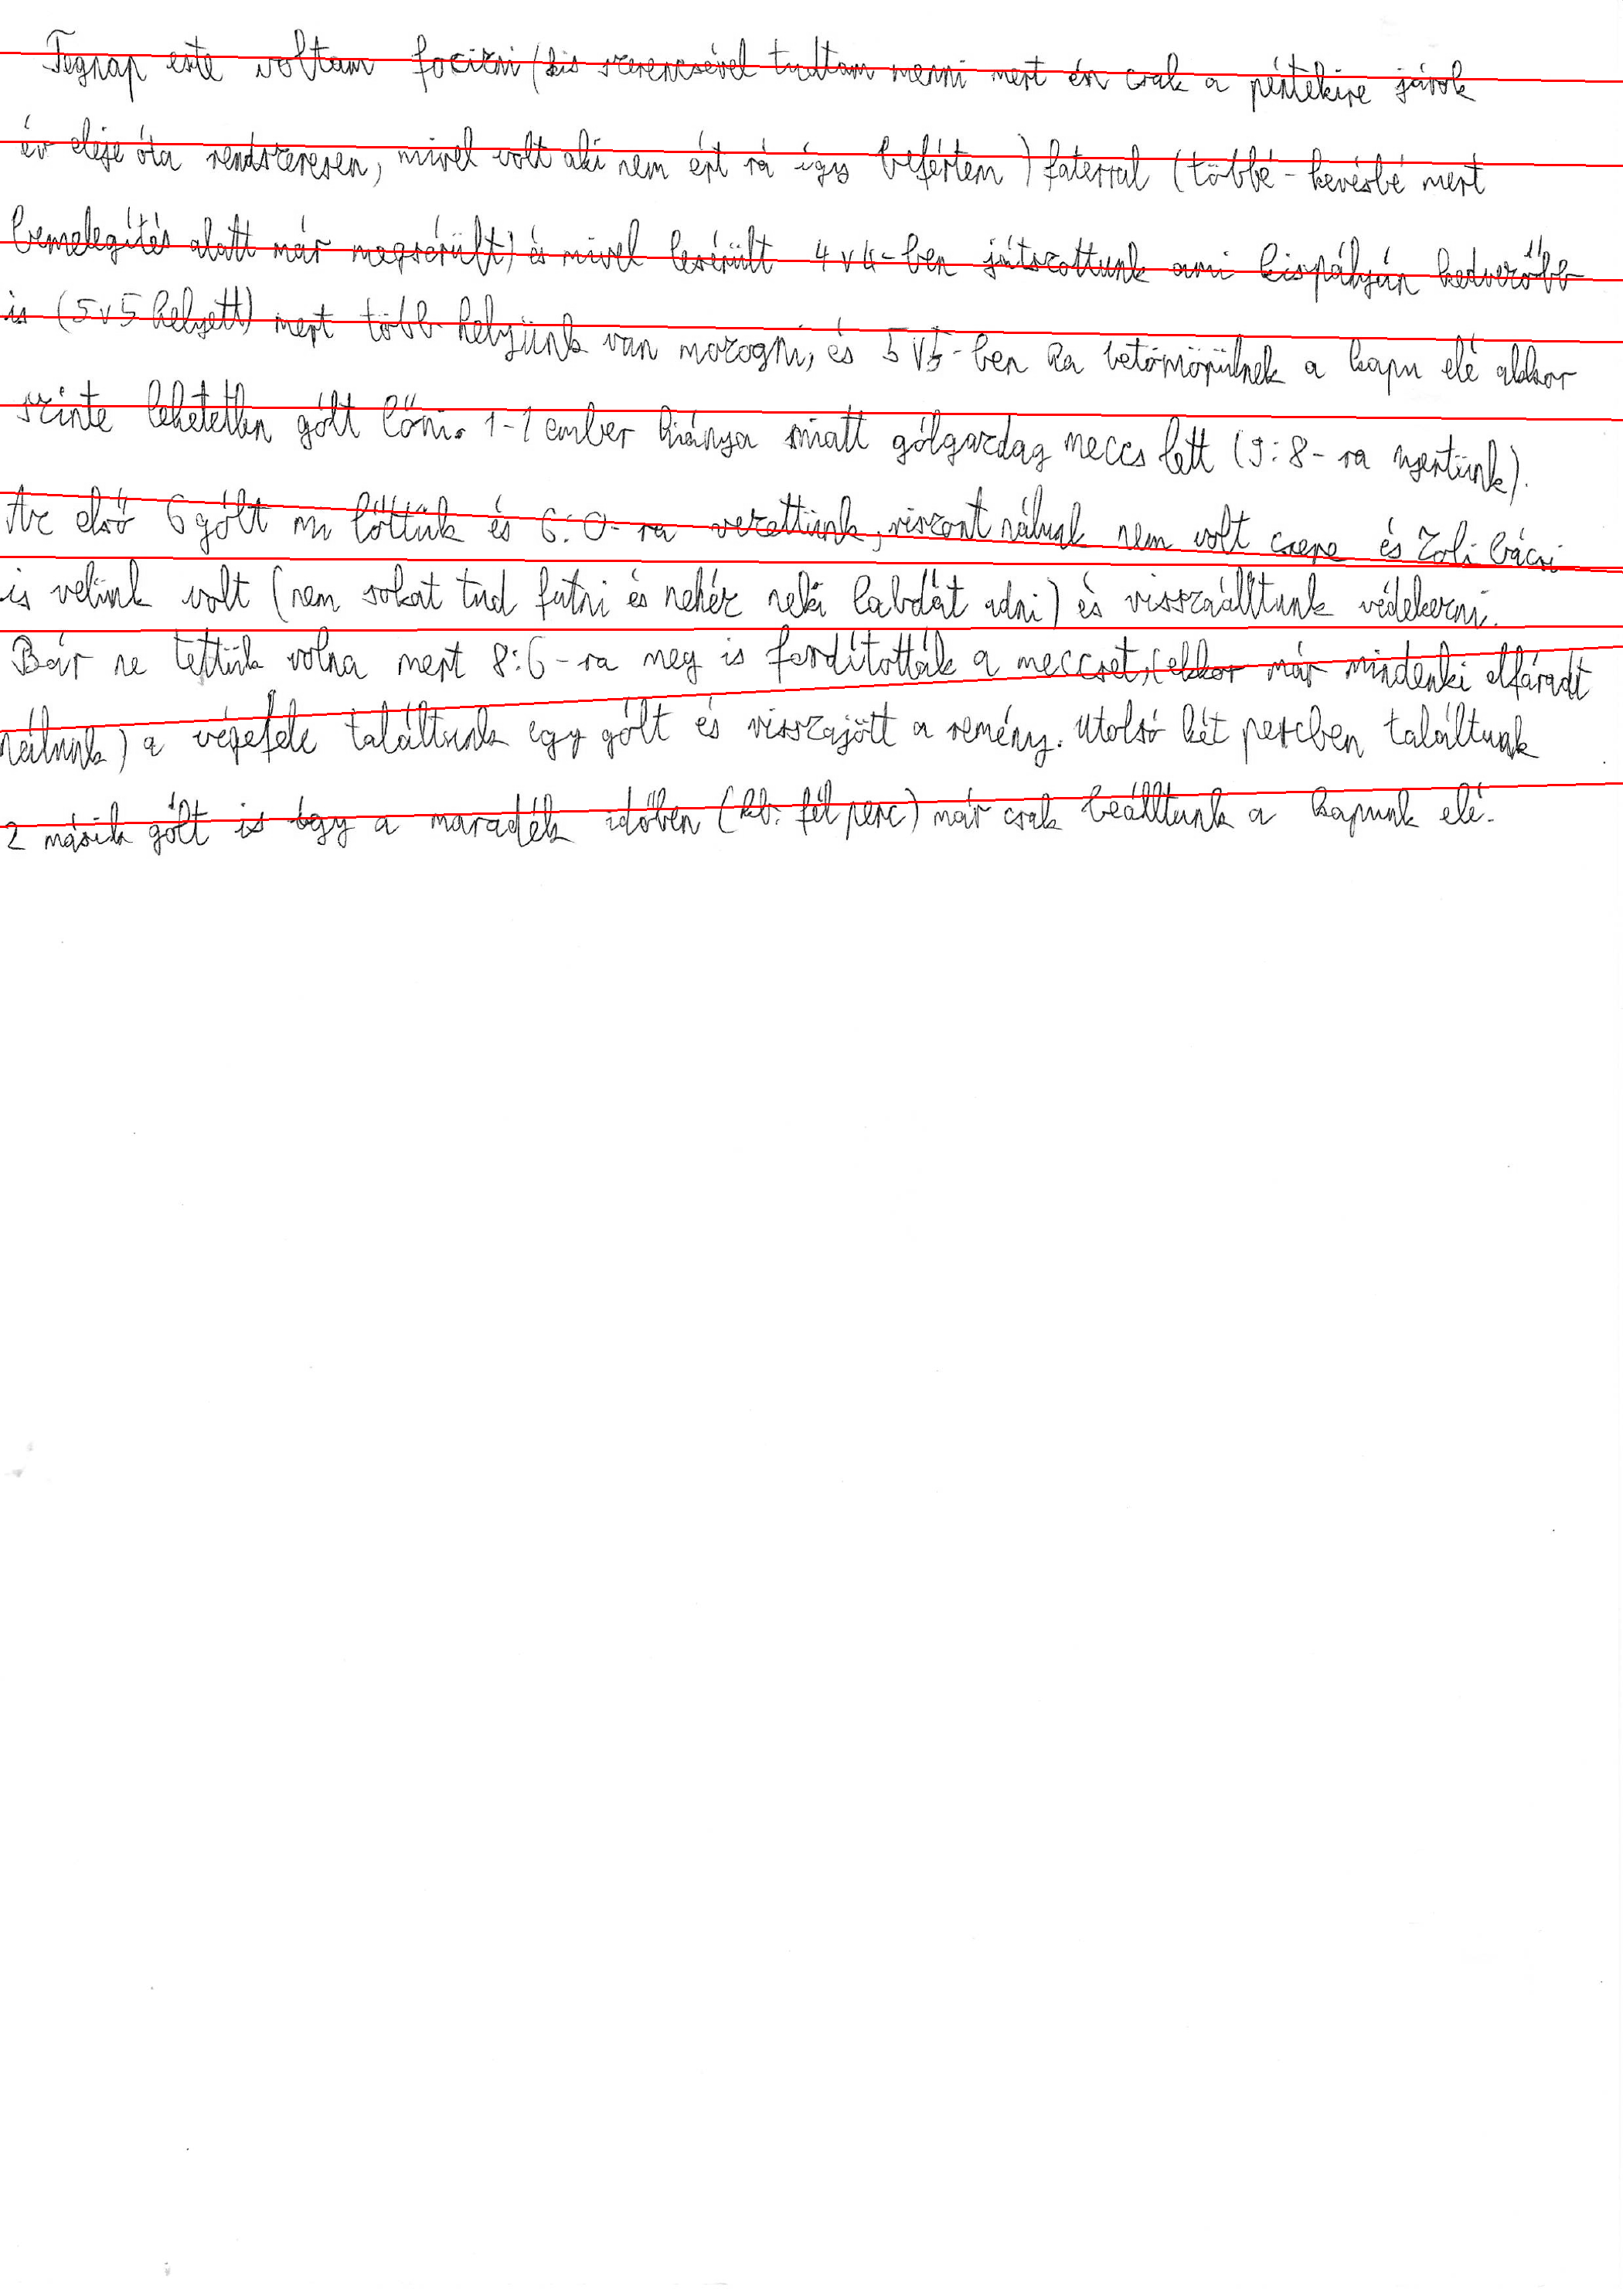 Tegnap este voltam focizni (kis szerencsével tudtam menni mert én csak a péntekire járok
év eleje óta rendszeresen, mivel volt aki nem ért rá így befértem) faterral (többé-kevésbé mert
bemelegítés alatt már megsérült) és mivel lesérült 4v4-ben játszottunk ami kispályán kedvezőbb
is (5v5 helyett) mert több helyünk van mozogni, és 5v5-ben ha betömörülnek a kapu elé akkor
szinte lehetetlen gólt lőni. 1-1 ember hiánya miatt gólgazdag meccs lett (9:8-ra nyertünk).
Az első 6 gólt mi lőttük és 6:0-ra vezettünk, viszont nálunk nem volt csere és Zoli bácsi
is velünk volt (nem sokat tud futni és nehéz neki labdát adni) és visszaálltunk védekezni.
Bár ne tettük volna mert 8:6-ra meg is fordították a meccset, (ekkor már mindenki elfáradt
nálunk) a végefele találtunk egy gólt és visszajött a remény. Utolsó két percben találtunk
2 másik gólt is így a maradék időben (kb: fél perc) már csak beálltunk a kapunk elé.